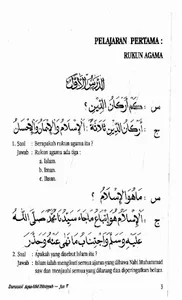 PELAJARAN PERTAMA :
RUKUN AGAMA
الدرس الأول
س : كم أركان الدين؟
ج : أركان الدين ثلاثة : الإسلام والإيمان والإحسان
1. Soal : Berapakah rukun agama itu ?
Jawab : Rukun agama ada tiga :
a. Islam.
b. Iman.
c. Ihsan.
س : ما هو الإسلام؟
ج : الإسلام هو اتباع ما جاء سيدنا محمد صلى الله
عليه وسلم واجتناب ما نهى عنه وحذر
2. Soal : Apakah yang disebut Islam itu ?
Jawab : Islam ialah mengikuti semua ajaran yang dibawa Nabi Muhammad
saw dan menjauhi semua yang dilarang dan diperingatkan beliau.
5